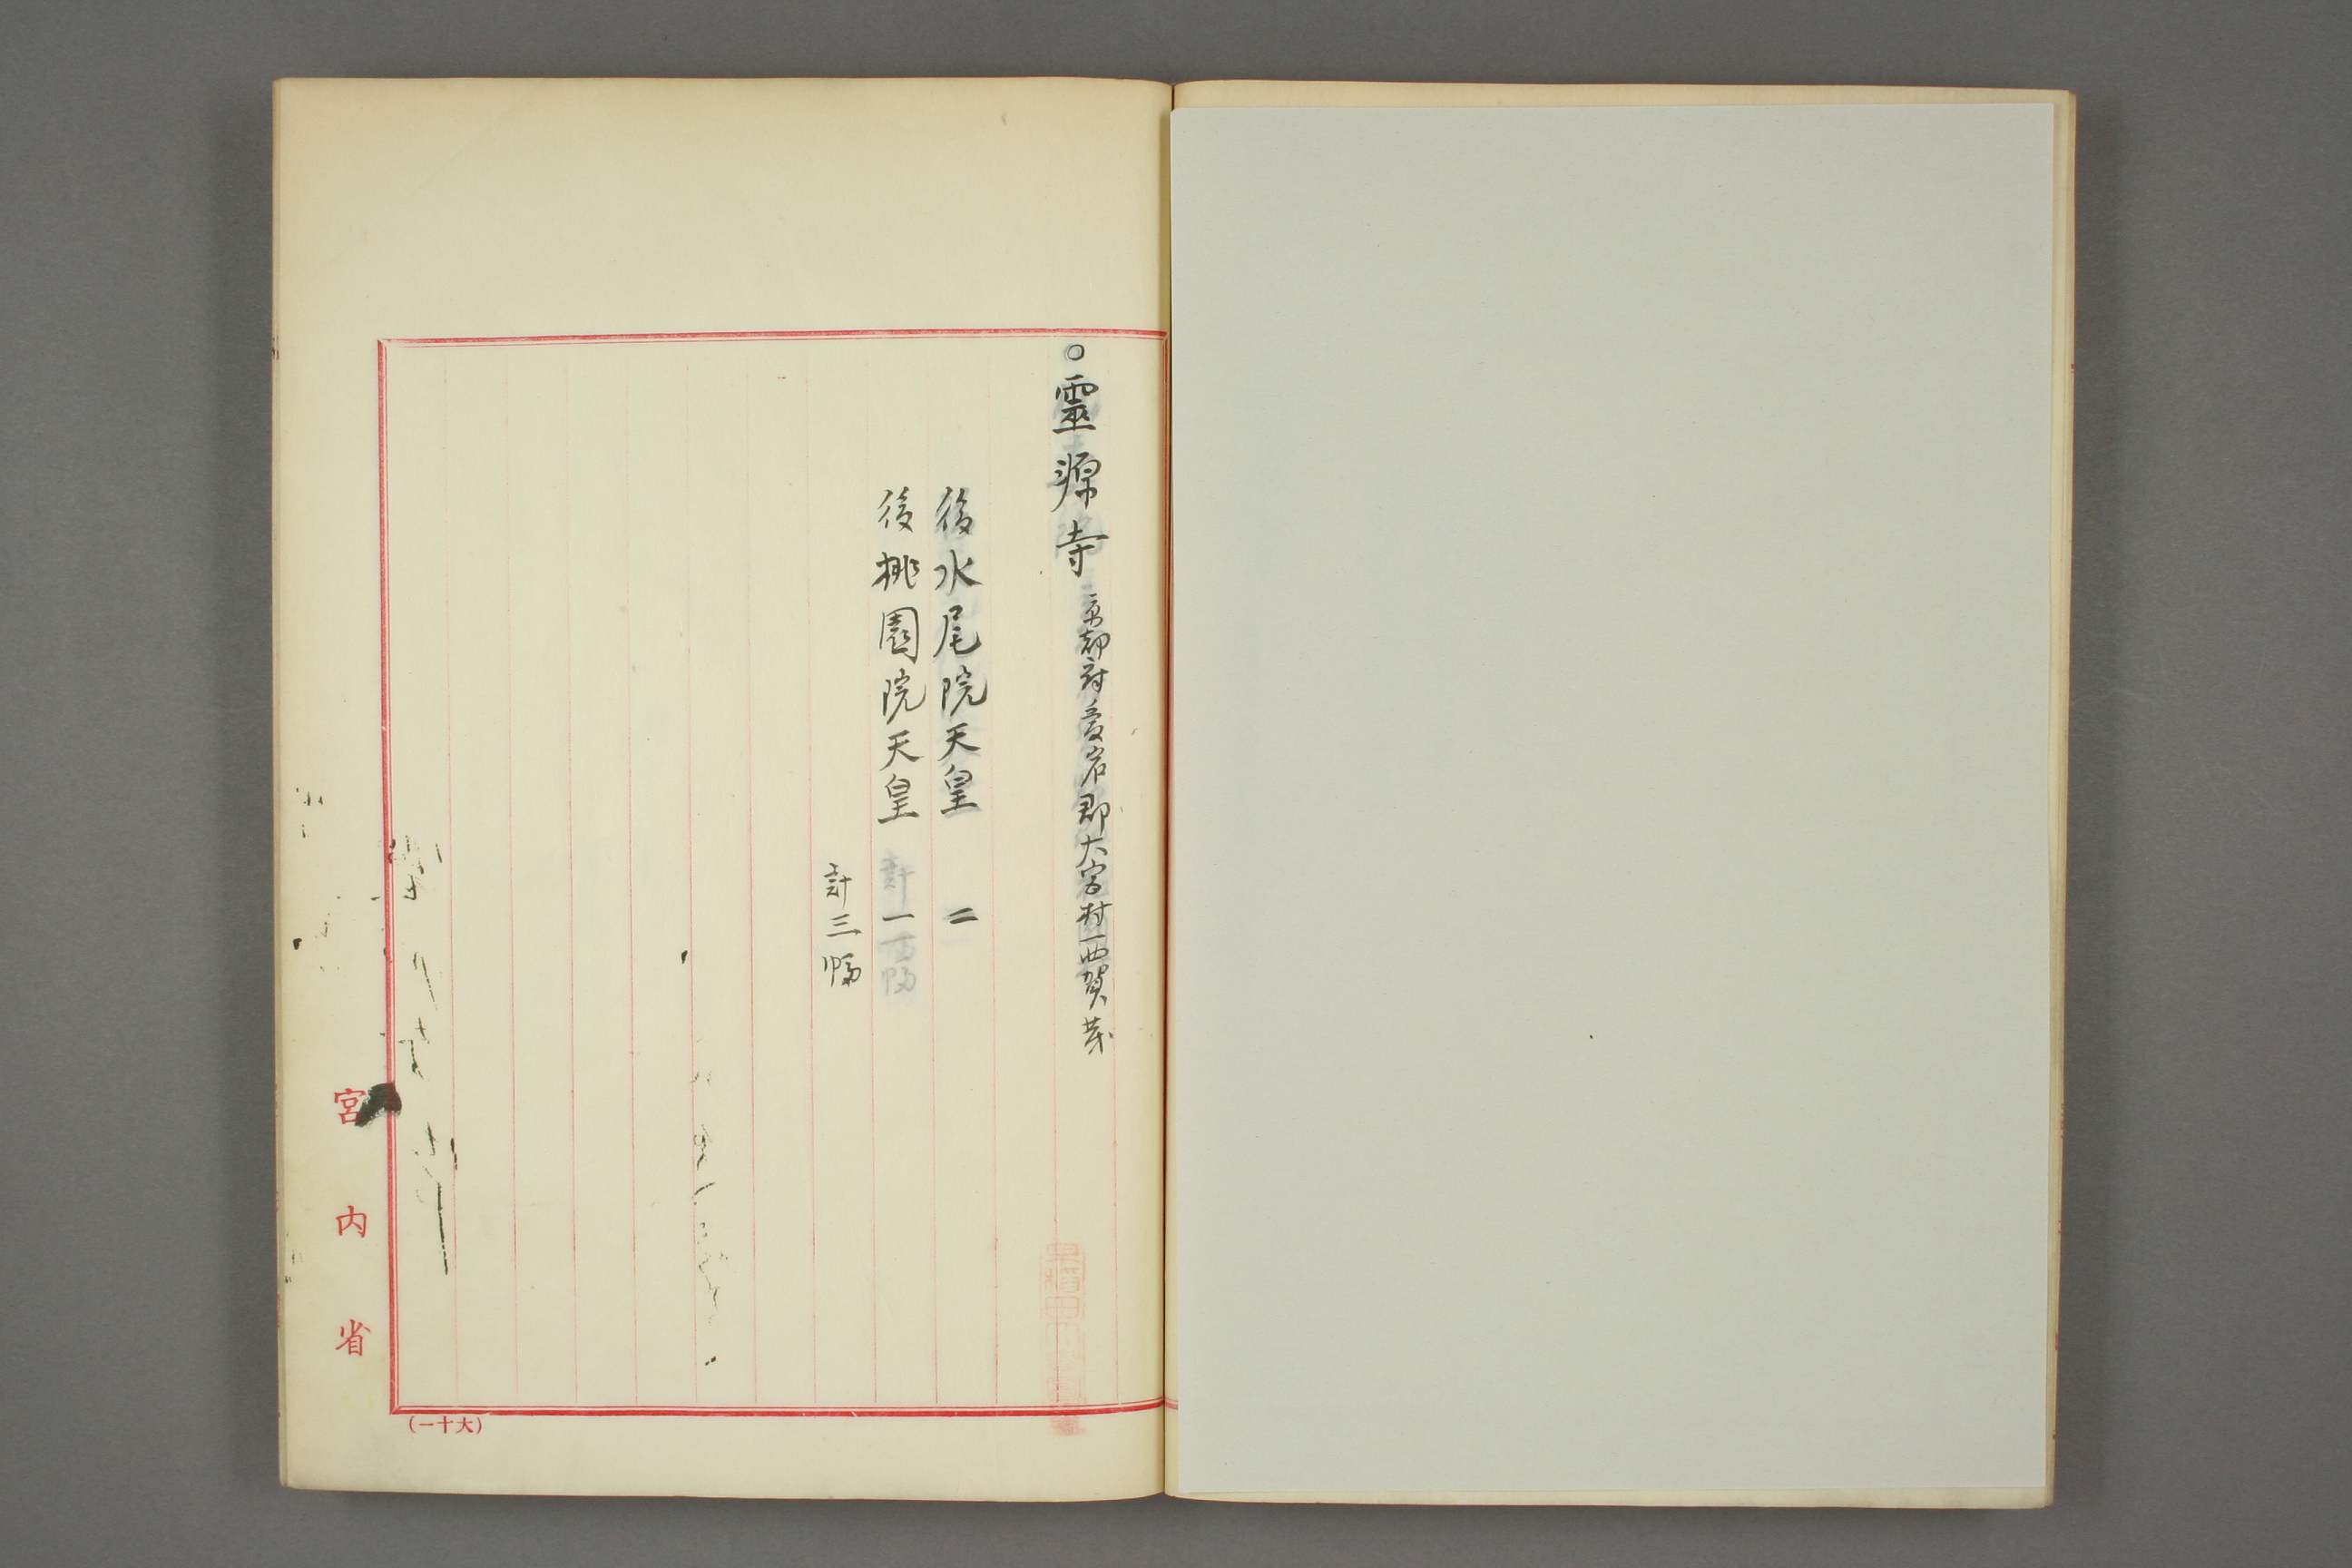 ○靈源寺 京都府愛宕郡大宮村西賀茂
後水尾院天皇 二
後桃園院天皇 一
計三幅
宮内省
(大十一)